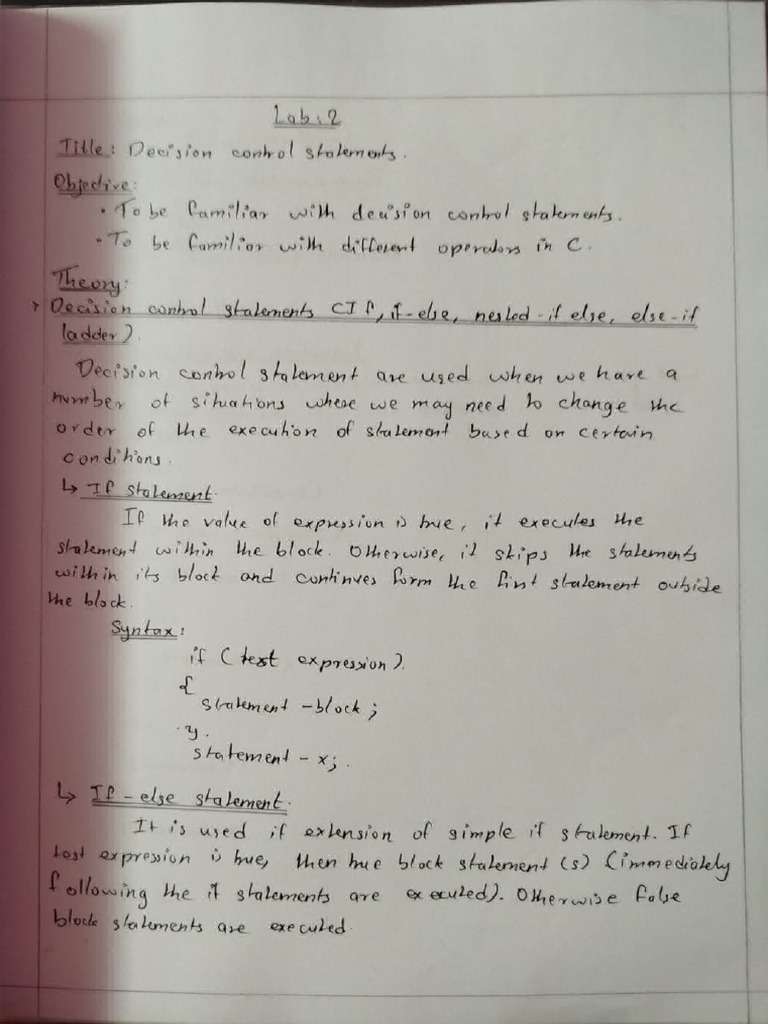 Lab: 2
Title: Decision control statements.
Objective:
• To be familiar with decision control statements.
• To be familiar with different operators in C.
Theory:
→ Decision control statements (If, if-else, nested-if else, else-if
ladder).
Decision control statement are used when we have a
number of situations where we may need to change the
order of the execution of statement based on certain
conditions.
↳ If statement.
If the value of expression is true, it executes the
statement within the block. Otherwise, it skips the statements
within its block and continues form the first statement outside
the block.
Syntax:
if (text expression).
{
statement -block;
}.
statement - x;.
↳ If - else statement.
It is used if extension of simple if statement. If
test expression is true, then true block statement (s) (immediately
following the if statements are executed). Otherwise false
block statements are executed.